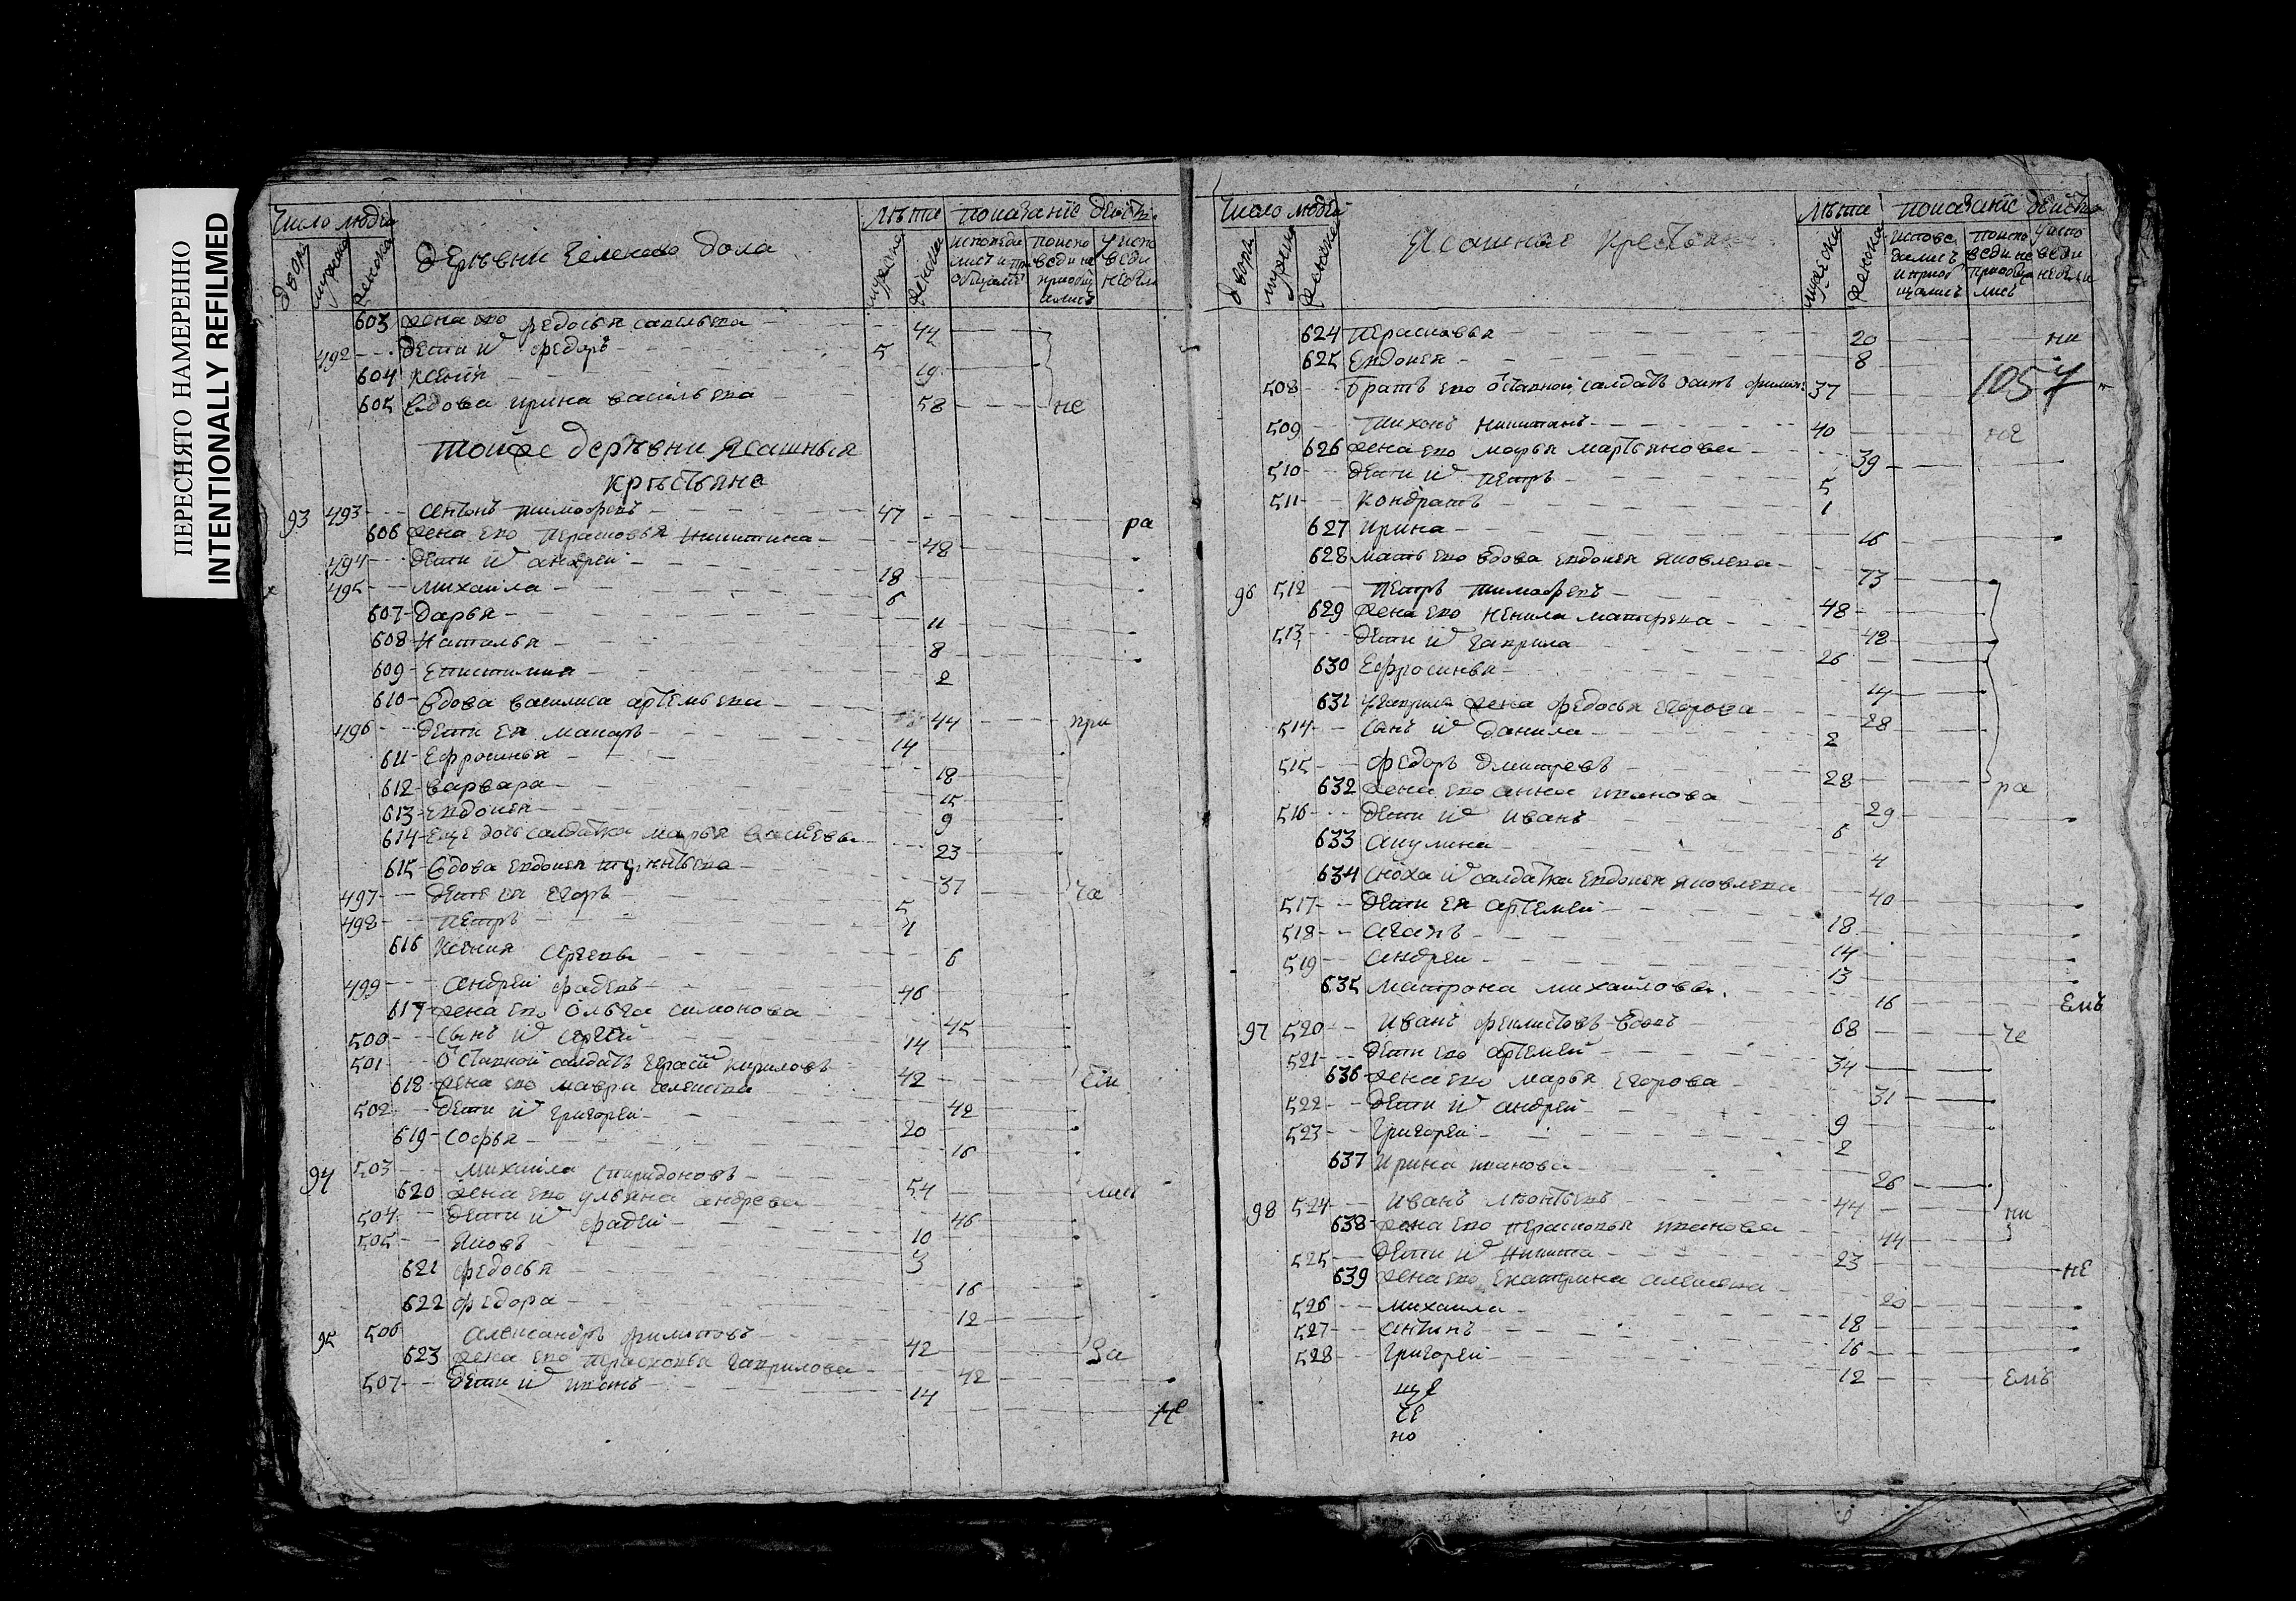 ПЕРЕСНЯТО НАМЕРЕННО
INTENTIONALLY REFILMED
Число людей
дворы
мужска
женска
деревни дола
лѣта
показанiе
мужска
женска
603 жена его федосья савельева 44
492 дети и͠ федоръ 5
604 ксенья 19
605 вдова ирина васильева 58 не
тойже деревни ясашныя
крестьяне
93 493 антонъ тимофеевъ 47 ра
606 жена его перасковья никитина 48
494 дети и͠ андрей 18
495 михайла 6
607 дарья 11
608 наталья 8
609 епистимия 2
610 вдова василиса артемьева 44 при
496 дети ея макаръ 14
611 Ефросинья 18
612 варвара 15
613 Евдокея 9
614 еще дочь салдатка марья 23
615 вдова евдокея 37 ча
497 дети ея Егоръ 5
498 петръ 1
616 Ксения Сергеева 6
499 андрей фадеевъ 46
617 жена его Ольга симонова 45
500 сынъ и͠ сергей 14
501 отставной салдатъ кириловъ 42
618 жена его мавра 42
502 дети и͠ григорей 20
619 софья 16
94 503 михайла спиридоновъ 54
620 жена его ульяна андреева 46
504 дети и͠ фадей 10
505 яковъ 3
621 федосья 16
622 федора 12
95 506 александръ филиповъ 42 за
623 жена его перасковья гаврилова 42
507 дети и͠ иванъ 14
не
Число людей
дворы
мужска
женска
Ясашные крестьяне
лѣта
показанiе
мужска
женска
624 перасковья 20 ни
625 Евдокея 8
1057
508 братъ его отставной салдатъ 37
509 тихонъ никитинъ 40 не
626 жена его марья мартьянова 39
510 дети и͠ петръ 5
511 кондратъ 1
627 ирина 16
628 мать его вдова евдокея яковлева 73
96 512 петръ тимофеевъ 48
629 жена его ненила матфеева 48
513 дети и͠ гаврила 26
630 Ефросинья 14
631 жена федосья егорова 28
514 сынъ и͠ данила 2
515 федоръ дмитревъ 28 ра
632 жена его анна иванова 29
516 дети и͠ иванъ 6
633 акулина 4
634 сноха и͠ салдатка евдокея яковлева 40
517 дети ея артемей 18
518 агапъ 14
519 андрей 13
635 матрона михайлова 16 емъ
97 520 иванъ феклистовъ вдовъ 68 че
521 дети его артемей 34
636 жена его марья егорова 31
522 дети и͠ андрей 9
523 григорей 2
637 ирина иванова 26
98 524 иванъ леонтьевъ 44 ни
638 жена его перасковья иванова 44
525 дети и͠ никита 23
639 жена его екатерина алексеева 20 не
526 михаила 18
527 антипъ 16
528 григорей 12 емъ
ще
че
но